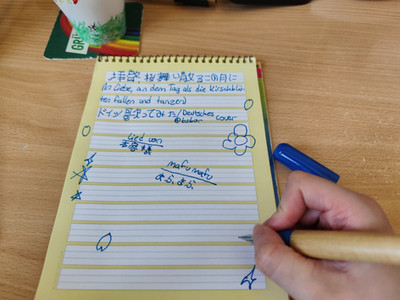 拝啓 桜舞い散るこの日に
(In Liebe, an dem Tag als die Kirschblü-
ten fallen und tanzen)
ドイツ語 歌ってみた/Deutsches
Cover
Lied von
mafumafu
まふまふ